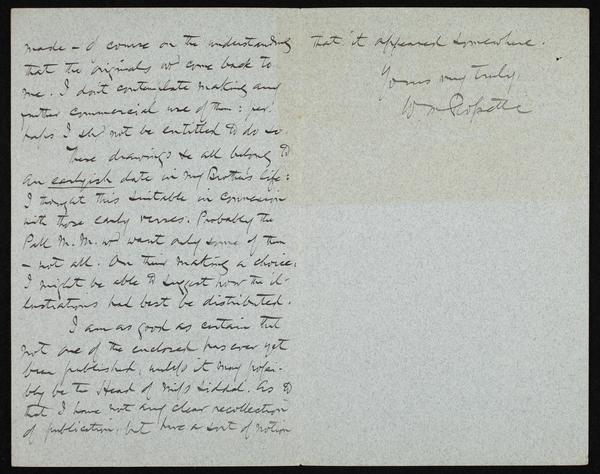 made – of course on the understanding
that the originals wd come back to
me. I don't contemplate making any
further commercial use of them: per-
haps I shd not be entitled to do so.
These drawings &c all belong to
an earlyish date in my Brother's life:
I thought this suitable in connexion
with those early verses. Probably the
Pall M. M. wd want only some of them
– not all. On their making a choice,
I might be able to suggest how the il-
lustrations had best be distributed.
I am as good as certain that
not one of the enclosed has ever yet
been published, unless it may possi-
bly be the Head of Miss Siddal. As to
that I have not any clear recollection
of publication, but have a sort of notion
that it appeared somewhere.
Yours very truly
Wm Rossetti